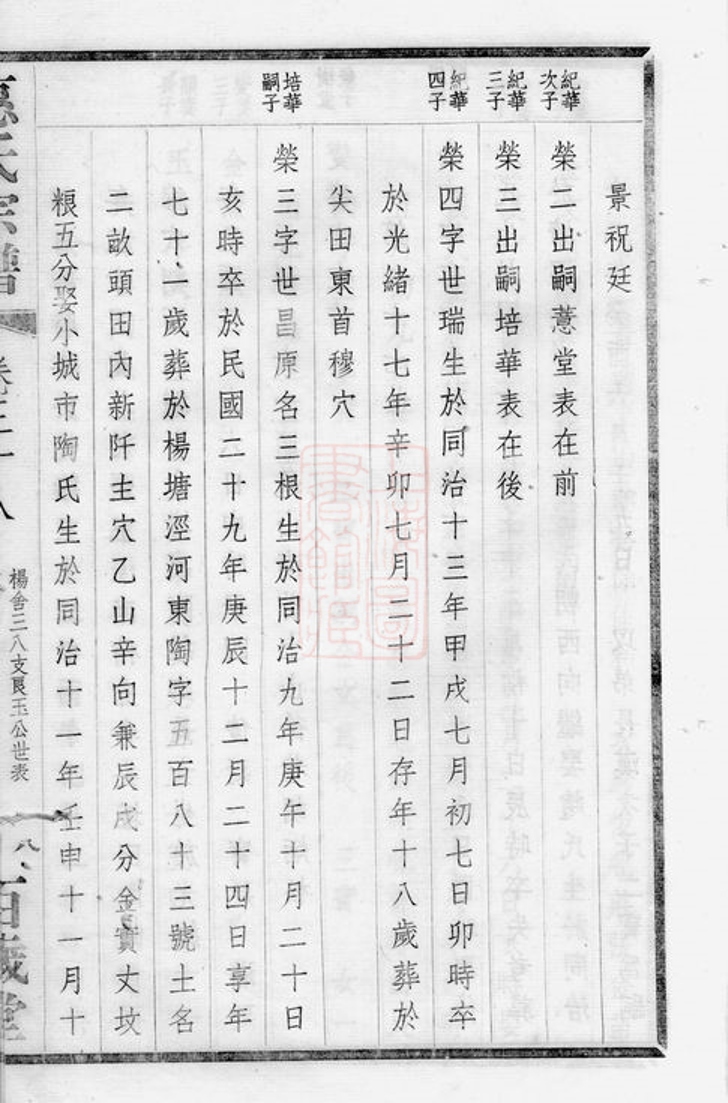 景祝廷
紀華次子
榮二出嗣薏堂表在前
紀華三子
榮三出嗣培華表在後
紀華四子
榮四字世瑞生於同治十三年甲戌七月初七日卯時卒
於光緒十七年辛卯七月二十二日存年十八歲葬於
尖田東首穆穴
培華嗣子
榮三字世昌原名三根生於同治九年庚午十月二十日
亥時卒於民國二十九年庚辰十二月二十四日享年
七十一歲葬於楊塘涇河東陶字五百八十三號土名
二畝頭田內新阡主穴乙山辛向兼辰戌分金實丈坟
粮五分娶小城市陶氏生於同治十一年壬申十一月十
氏宗譜
楊舍三八支良玉公世表
八
百歲堂